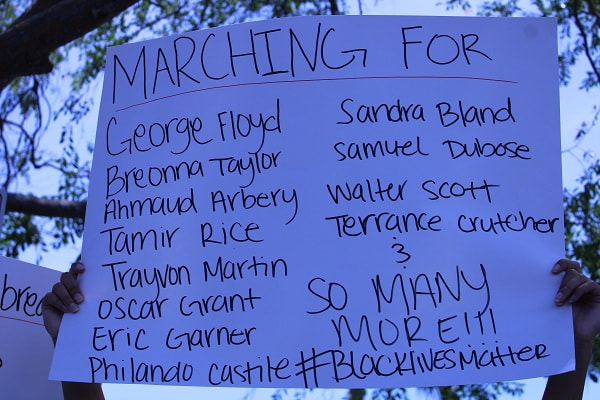 MARCHING FOR
George Floyd
Breonna Taylor
Ahmaud Arbery
Tamir Rice
Trayvon Martin
Oscar Grant
Eric Garner
Philando Castile
Sandra Bland
Samuel Dubose
Walter Scott
Terrance Crutcher
&
SO MANY
MORE!!!
#BLACKLIVESMatter